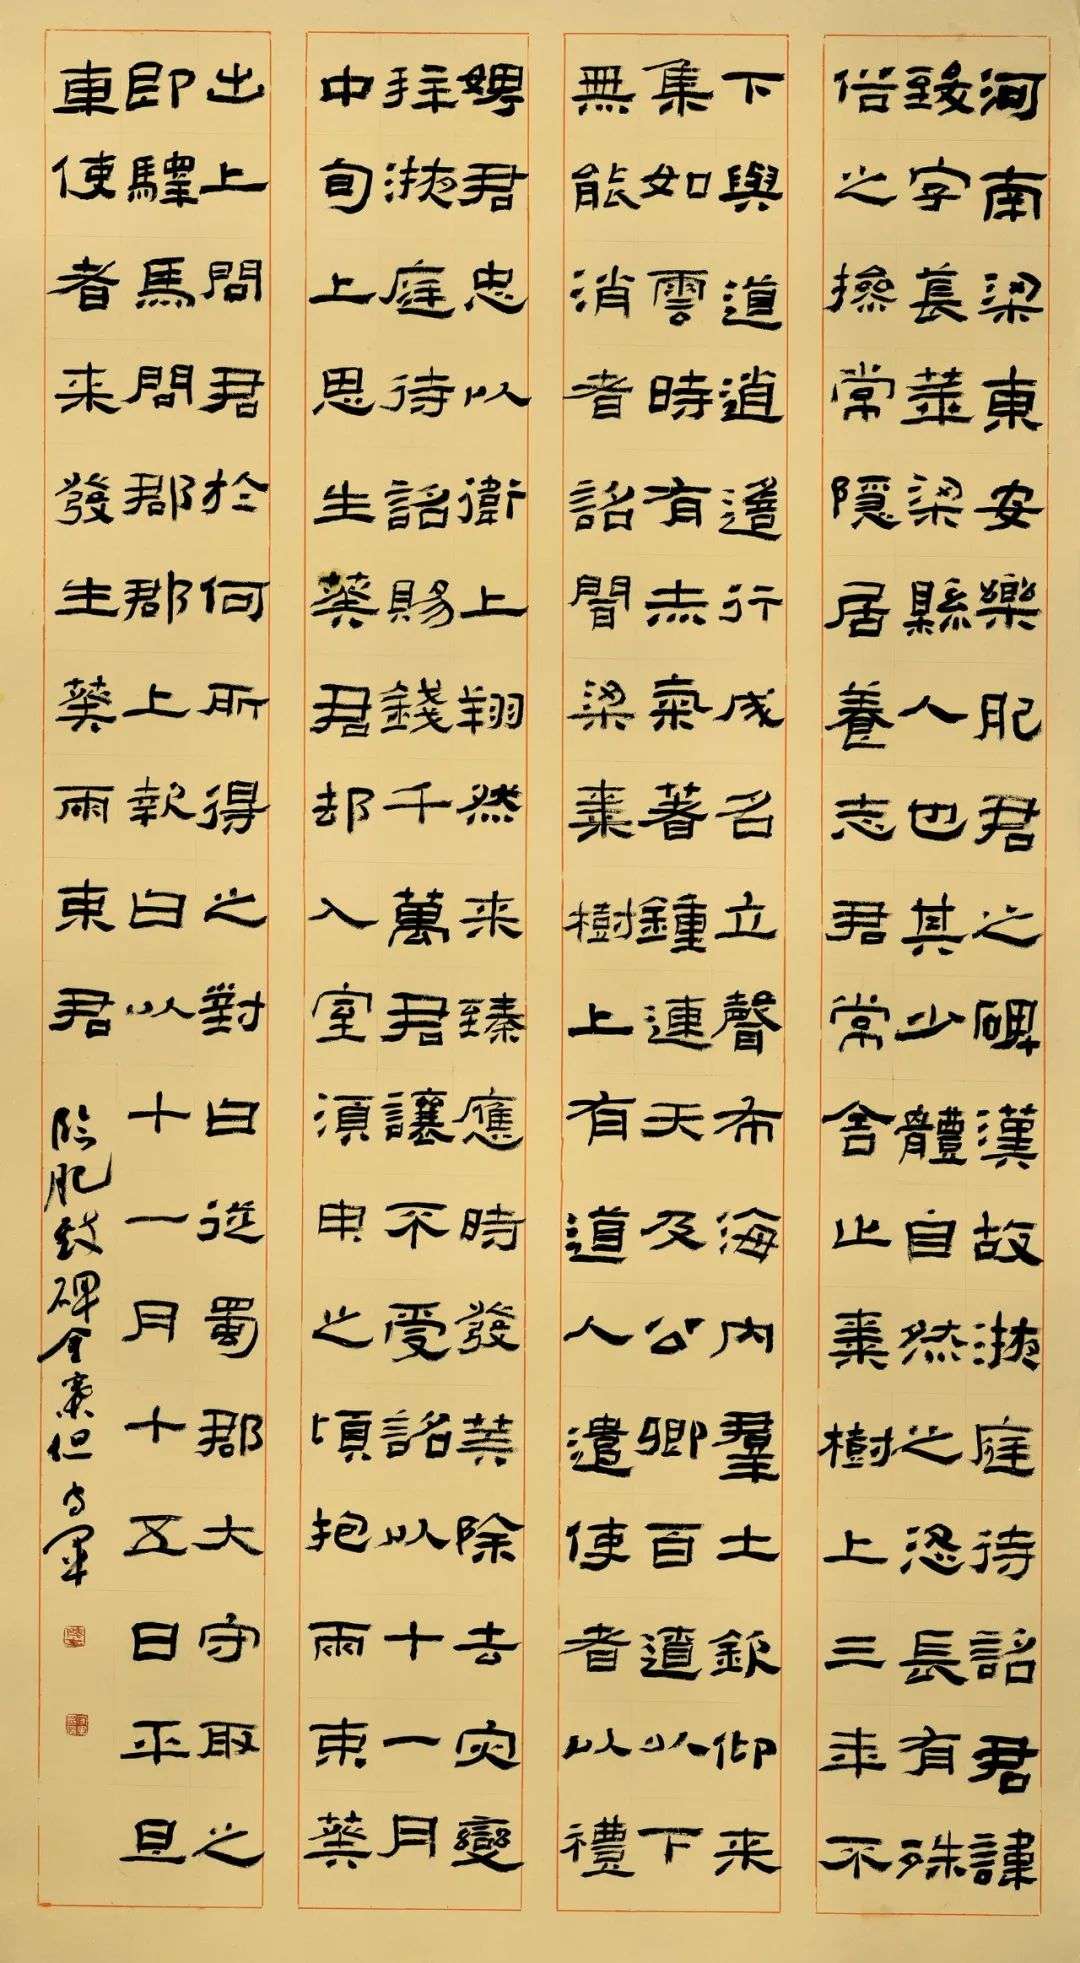 河南梁東安樂肥君之碑漢故掖庭待詔君諱
致字萇華梁縣人也其少體自然之恣長有殊
俗之操常隱居養志君常舍止棗樹上三年不
下與道逍遙行成名立聲布海内羣士欽仰来
集如雲時有赤氣著鍾連天及公卿百遣以下
無能消者詔聞梁棗樹上有道人遣使者以禮
娉君忠以衛上翔然来臻應時發筭除去灾變
拜掖庭待詔賜錢千萬君讓不受詔以十一月
中旬上思生葵君却入室須申之頃抱兩束葵
出上問君於何所得之對曰從蜀郡大守取之
即驛馬問郡郡上報曰以十一月十五日平旦
東使者来發生葵兩束君
临肥致碑